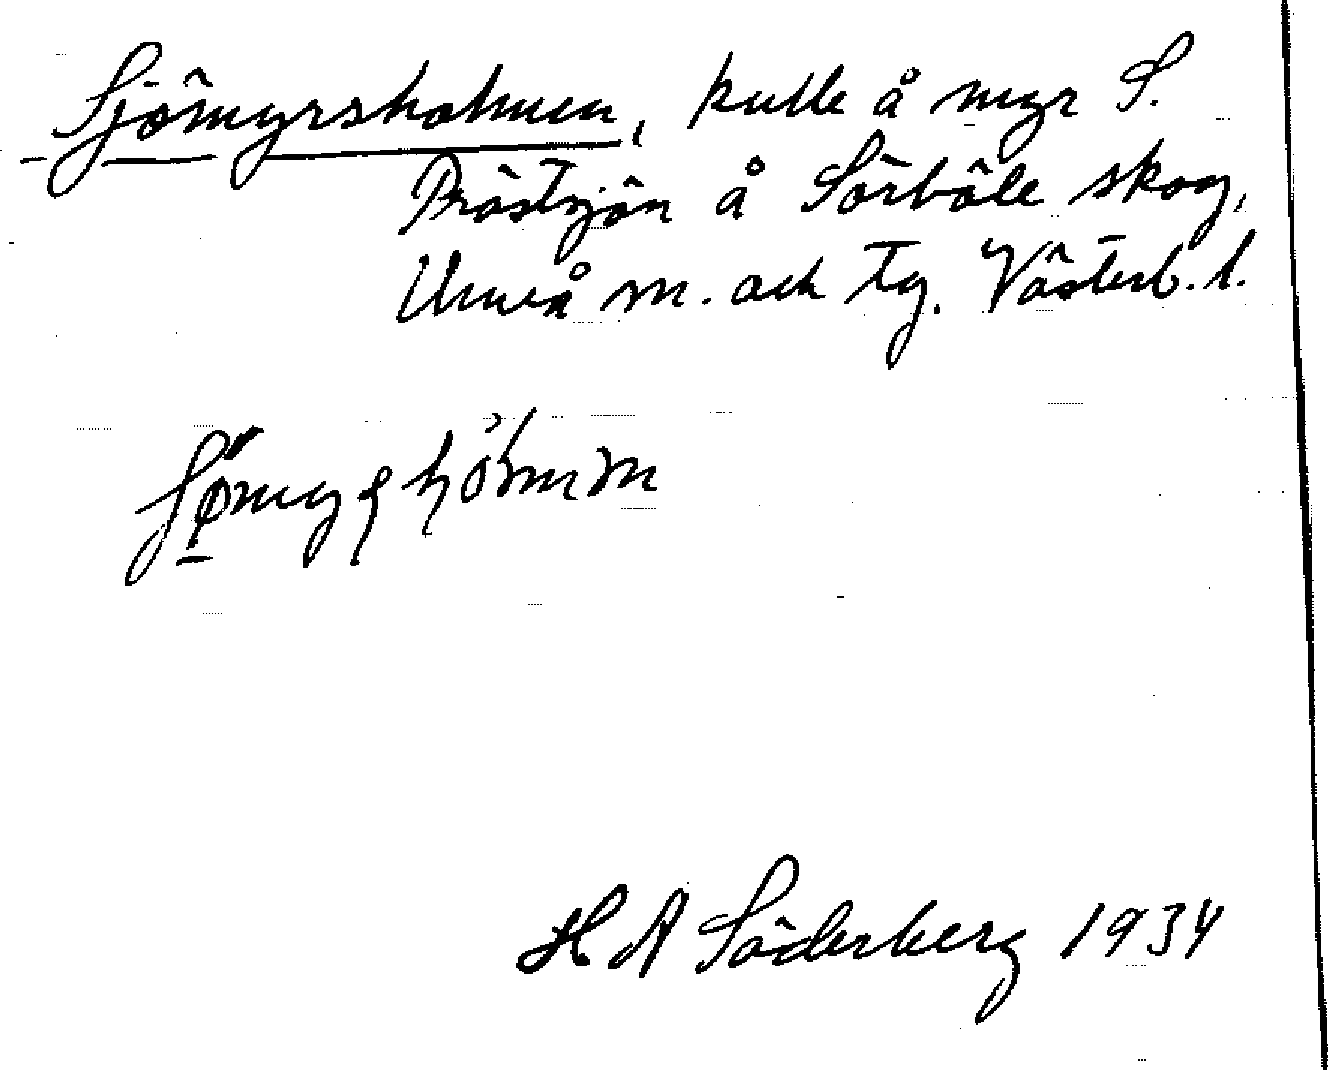 Sjömyrsholmen, kulle å myr S.
Prästsjön å Sörböle skog,
Umeå sn. och tg. Västerb. l.
H A Söderberg 1934